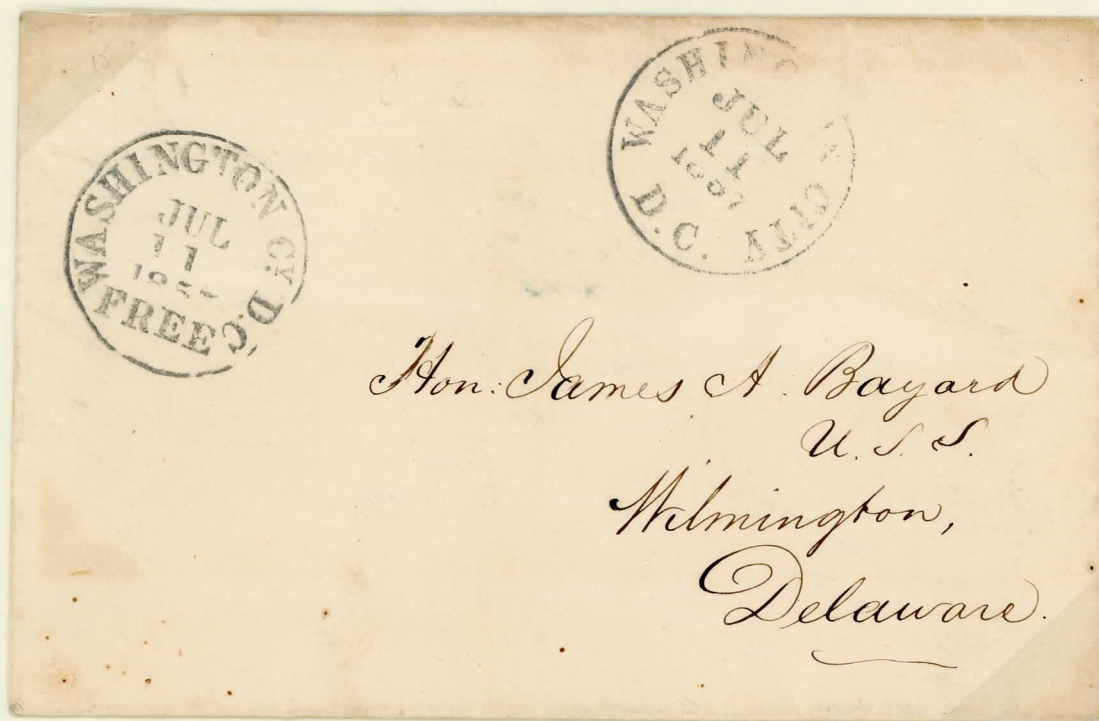 WASHINGTON Cy. D.C.
JUL
11
FREE
WASHINGTON CITY
D.C.
JUL
11
1857
Hon: James A. Bayard
U.S.S.
Wilmington,
Delaware.